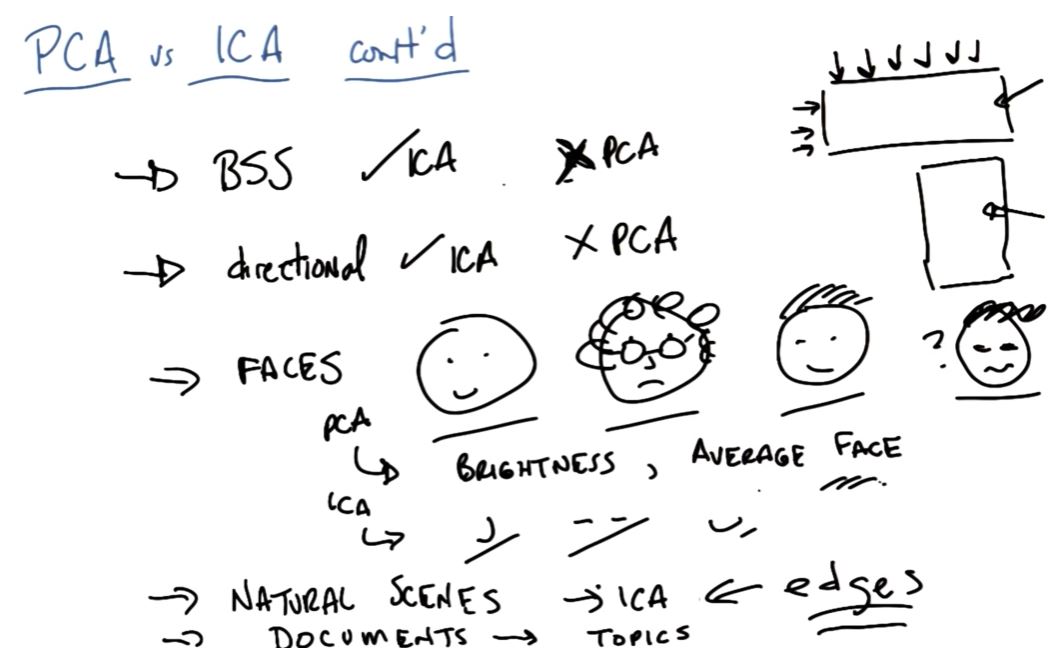 PCA vs ICA cont'd
→ BSS ✓ ICA ✗ PCA
→ directional ✓ ICA ✗ PCA
⇒ FACES ?
PCA
↳ BRIGHTNESS, AVERAGE FACE
ICA
↳
→ NATURAL SCENES → ICA ← edges
→ DOCUMENTS → TOPICS